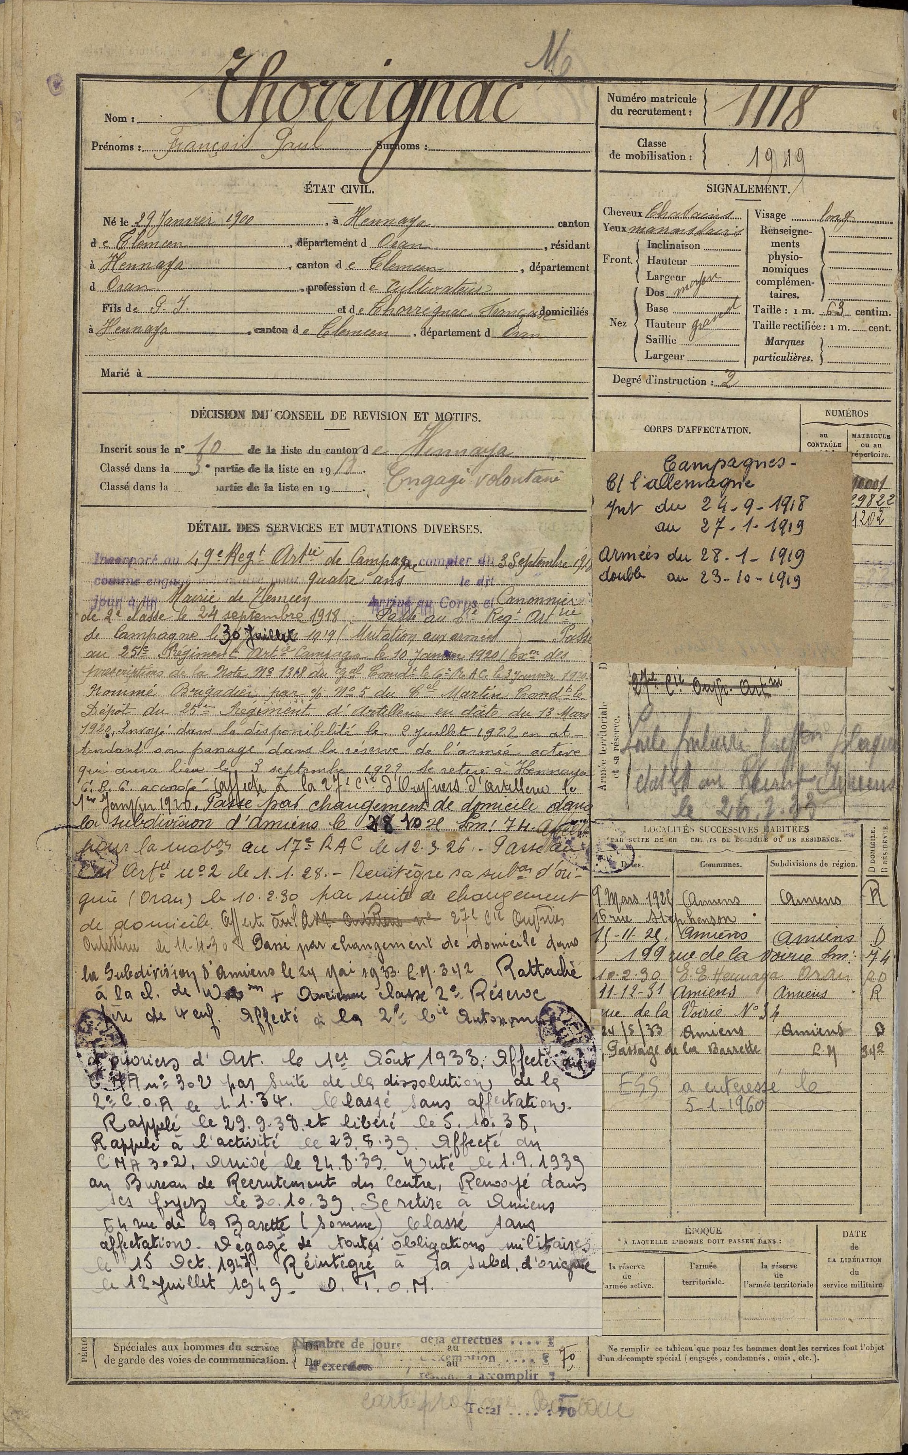 Nom : Thorrignac
Prénoms : François Paul Surnoms :
Numéro matricule du recrutement : 1118
Classe de mobilisation : 1919
ÉTAT CIVIL.
Né le 29 Janvier 1900, à Hennaya canton
de Tlemcen, département d Oran, résidant
à Hennaya, canton de Tlemcen, département
d Oran, profession de cultivateur
Fils de G. J. et de Thorrignac Françoise domiciliés
à Hennaya, canton de Tlemcen, département d Oran
Marié à
SIGNALEMENT.
Cheveux Chatains
Yeux
Front. Inclinaison
Hauteur
Largeur
Nez Dos moyen
Base
Hauteur grand
Saillie
Largeur
Visage long
Renseignements physionomiques complémentaires.
Taille : 1 m. 63 centim.
Taille rectifiée : 1 m. cent.
Marques particulières.
Degré d'instruction : 2
DÉCISION DU CONSEIL DE REVISION ET MOTIFS.
Inscrit sous le n° 10 de la liste du canton de Hennaya
Classé dans la 5e partie de la liste en 1918. Engagé volontaire
Classé dans la partie de la liste en 19
CORPS D'AFFECTATION.
NUMÉROS
au CONTRÔLE
MATRICULE ou au répertoire.
Campagnes -
Ct l'allemagne
Int du 24-9-1918
au 27-1-1919
Armées du 28-1-1919
double au 23-10-1919
DÉTAIL DES SERVICES ET MUTATIONS DIVERSES.
Incorporé au 49e Regt Artie de Campagne compter du 3 Septembre
quatre ans le dit
jour à la Mairie de Tlemcen Arrivé au Corps et Canonnier
de 2e classe le 24 septembre 1918. Passé au Reg. Artie
de Campagne le 30 Juillet 1919 (Mutation aux armées) Passé
au 25e Régiment d'Artie Campagne le 10 Janvier 1920
prescriptions de la Note No
Nommé Brigadier par No 5 du Ct Martin Comdt le
Dépôt du 25e Régiment d'Artillerie en date du 13 Mars
1920, Envoyé dans la disponibilité le 2 juillet 1922 en at-
tendant son passage dans la réserve de l'armée active
qui aura lieu le 3 septembre 1922 se retire à Hennaya
C. B. C. accordé. Affecté à la 27e Cie d'Ouvriers d'artillerie le
1er Janvier 1926. Passé par changement de domicile dans
la subdivision d'Amiens le 28.10.25 Lm. 74 affecté
pour la mobon au 17e RAC le 12.3.26. Passé au
Art. no 2 le 1.1.28. - Réintègre sa subon d'ori-
gine (Oran) le 10.2.30 par suite de changement
de domicile, Affecté 27e Cie Ouvriers
Artillerie Passé par changement de domicile dans
la Subdivision d'Amiens le 24 Mai 1933. L.M. 342 Rattaché
à la cl. de Ancienne classe 2e Réserve
père de 4 enf. Affecté à la 2e Cie Autonome
d'ouvriers d'Art. le 1er Août 1933. Affecté au
C.M.A no 302 par suite de la dissolution de la
2e C.O.A le 1.1.34. Classé sans affectation.
Rappelé le 29.9.38 et libéré le 5.10.38,
Rappelé à l'activité le 23.8.39. Affecté au
CMA 302. Arrivé le 24.8.39. Muté le 1.9.1939
au Bureau de Recrutement du Centre, Renvoyé dans
ses foyers le 30.10.39. Se retire à Amiens
64 rue de la Barette (Somme) Classé sans
affectation. Dégagé de toutes obligations militaires
le 15 Oct. 1948. Réintégré à la subd. d'origine
le 12 Juillet 1949. D.T.O.M.
27e Cie Ouvr. Artie
Armée territoriale et sa réserve.
le 26.7.39
LOCALITÉS SUCCESSIVES HABITÉES
PAR SUITE DE CHANGEMENTS DE DOMICILE OU DE RÉSIDENCE.
Dates. Communes. Subdivisions de région. D DOMICILE. R RÉSIDENCE.
9 Mars 1926 Amiens Amiens R
16 rue Stephenson
15-11-25 Amiens Amiens D
199 rue de la Voirie Lm: 74
10-2-30 Hennaya Oran 20
11-12-31 Amiens Amiens R
rue de la Voirie No 34
24/5/33 Amiens Amiens D
Passage de la Barette L.M 342
ESS a intéressé le
5-1-1960
ÉPOQUE
À LAQUELLE L'HOMME DOIT PASSER DANS :
la réserve de l'armée active.
l'armée territoriale.
la réserve de l'armée territoriale
DATE de LA LIBÉRATION du service militaire.
Spéciales aux hommes du service
de garde des voies de communication.
Nombre de jours déjà effectués
d'exercices
à accomplir
70
Ne remplir ce tableau que pour les hommes dont les services font l'objet
d'un décompte spécial (engagés, condamnés, omis, etc.).
Total .... : 70